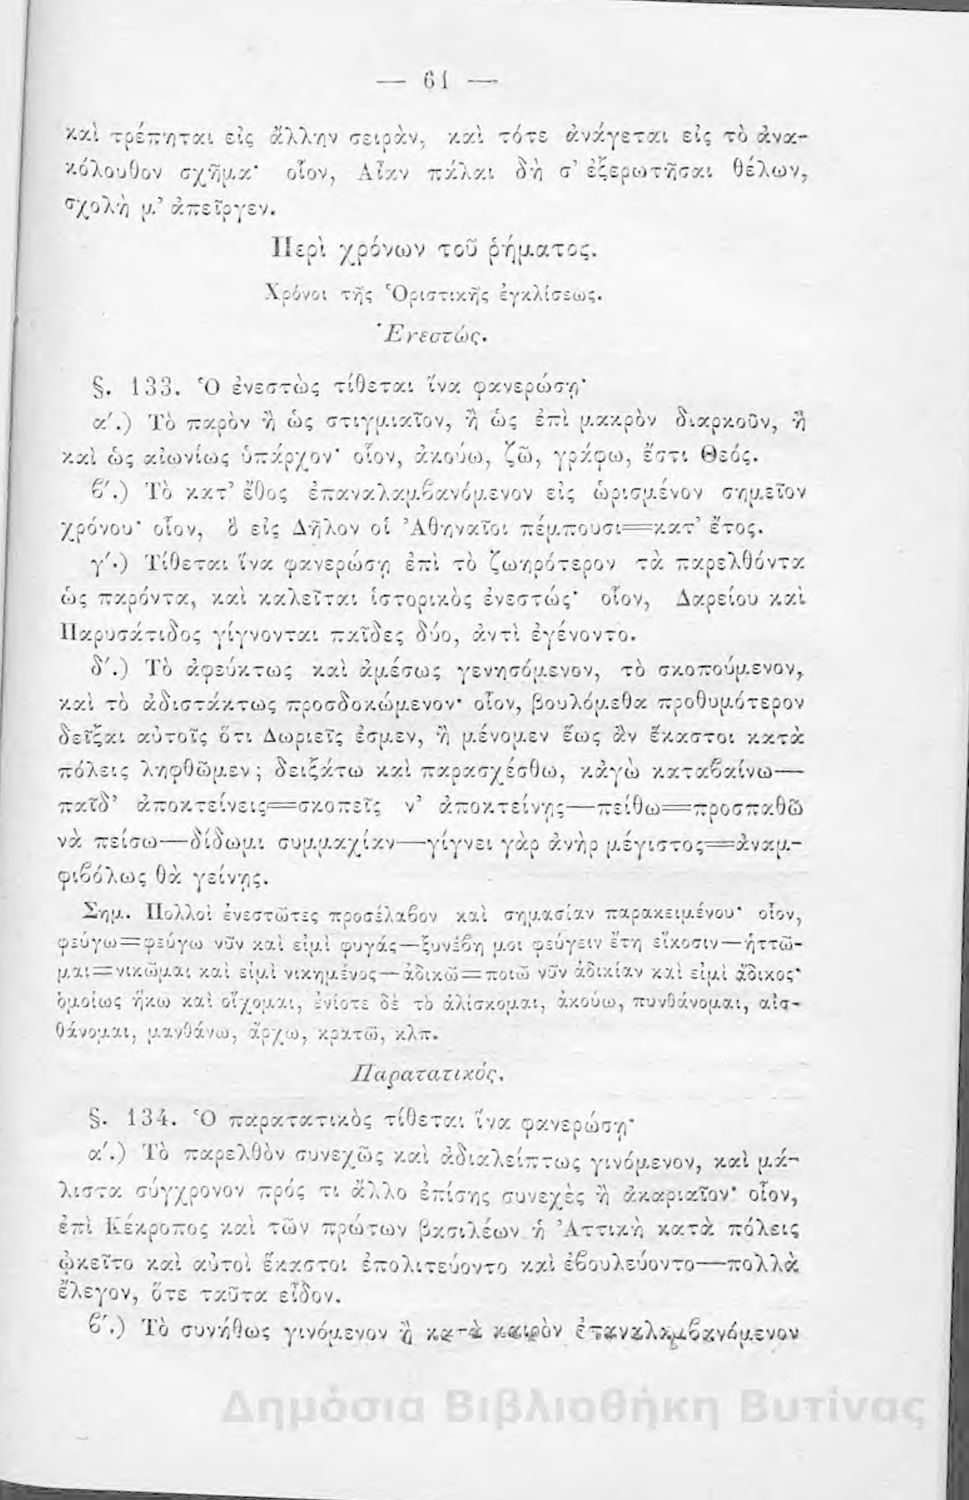 — 61 —
καὶ τρέπηται εἰς ἄλλην σειρὰν, καὶ τότε ἀνάγεται εἰς τὸ ἀνα-
κόλουθον σχῆμα· οἷον, Αἶαν πάλαι δή σ' ἐξερωτῆσαι θέλων,
σχολή μ' ἀπεῖργεν.
Περὶ χρόνων τοῦ ῥήματος.
Χρόνοι τῆς Ὁριστικῆς ἐγκλίσεως.
Ἐνεστώς.
§. 133. Ὁ ἐνεστὼς τίθεται ἵνα φανερώσῃ·
α΄.) Τὸ παρὸν ἢ ὡς στιγμιαῖον, ἢ ὡς ἐπὶ μακρὸν διαρκοῦν, ἢ
καὶ ὡς αἰωνίως ὑπάρχον· οἷον, ἀκούω, ζῶ, γράφω, ἔστι Θεός.
ϐ΄.) Τὸ κατ' ἔθος ἐπαναλαμϐανόμενον εἰς ὡρισμένον σημεῖον
χρόνου· οἷον, ὃ εἰς Δῆλον οἱ Ἀθηναῖοι πέμπουσι=κατ' ἔτος.
γ΄.) Τίθεται ἵνα φανερώσῃ ἐπὶ τὸ ζωηρότερον τὰ παρελθόντα
ὡς παρόντα, καὶ καλεῖται ἱστορικὸς ἐνεστώς· οἷον, Δαρείου καὶ
Παρυσάτιδος γίγνονται παῖδες δύο, ἀντὶ ἐγένοντο.
δ΄.) Τὸ ἀφεύκτως καὶ ἀμέσως γενησόμενον, τὸ σκοπούμενον,
καὶ τὸ ἀδιστάκτως προσδοκώμενον· οἷον, βουλόμεθα προθυμότερον
δεῖξαι αὐτοῖς ὅτι Δωριεῖς ἐσμεν, ἢ μένομεν ἕως ἂν ἕκαστοι κατὰ
πόλεις ληφθῶμεν; δειξάτω καὶ παρασχέσθω, κἀγὼ καταϐαίνω—
παῖδ' ἀποκτείνεις=σκοπεῖς ν' ἀποκτείνῃς—πείθω=προσπαθῶ
νὰ πείσω—δίδωμι συμμαχίαν—γίγνει γὰρ ἀνὴρ μέγιστος=ἀναμ-
φιϐόλως θὰ γείνῃς.
Σημ. Πολλοὶ ἐνεστῶτες προσέλαϐον καὶ σημασίαν παρακειμένου· οἷον,
φεύγω=φεύγω νῦν καὶ εἰμὶ φυγάς—ξυνέϐη μοι φεύγειν ἔτη εἴκοσιν—ἡττῶ-
μαι=νικῶμαι καὶ εἰμὶ νικημένος—ἀδικῶ=ποιῶ νῦν ἀδικίαν καὶ εἰμὶ ἄδικος·
ὁμοίως ἥκω καὶ οἴχομαι, ἐνίοτε δὲ τὸ ἁλίσκομαι, ἀκούω, πυνθάνομαι, αἰσ-
θάνομαι, μανθάνω, ἄρχω, κρατῶ, κλπ.
Παρατατικός.
§. 134. Ὁ παρατατικὸς τίθεται ἵνα φανερώσῃ·
α΄.) Τὸ παρελθὸν συνεχῶς καὶ ἀδιαλείπτως γινόμενον, καὶ μά-
λιστα σύγχρονον πρός τι ἄλλο ἐπίσης συνεχὲς ἢ ἀκαριαῖον· οἷον,
ἐπὶ Κέκροπος καὶ τῶν πρώτων βασιλέων ἡ Ἀττικὴ κατὰ πόλεις
ᾠκεῖτο καὶ αὐτοὶ ἕκαστοι ἐπολιτεύοντο καὶ ἐϐουλεύοντο—πολλὰ
ἔλεγον, ὅτε ταῦτα εἶδον.
ϐ΄.) Τὸ συνήθως γινόμενον ἢ κατὰ καιρὸν ἐπαναλαμϐανόμενον
Δημόσια Βιβλιοθήκη Βυτίνας